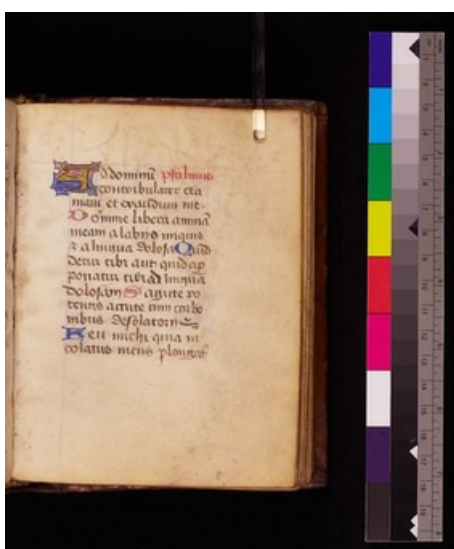 Ad dominū psalmus
contribularer cla
maui et exaudiuit me
Domine libera animā
meam a labiis iniquis
z a lingua dolosa Quid
detur tibi aut quid ap
ponatur tibi ad linguā
dolosam Sagitte po
tentis accute cum carbo
nibus desolatoriis
Heu michi quia in
colatus meus plongat9